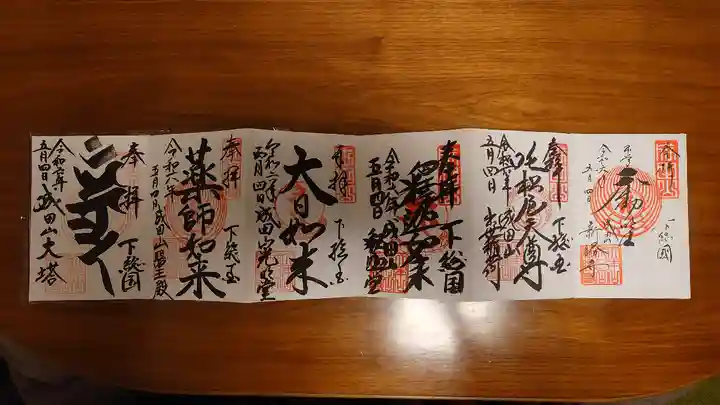 奉拝
下総国
不動
新勝寺
五月四日
奉拝
下総国
吒枳尼天尊
成田山
出世稲荷
五月四日
奉拝
下総国
釋迦如来
令和六年 成田山釈迦堂
五月四日
奉拝
下総国
大日如来
令和六年 成田山光明堂
五月四日
奉拝
下総国
薬師如来
令和六年
五月四日 成田山醫王殿
奉拝
下総国
令和六年
五月四日 成田山大塔